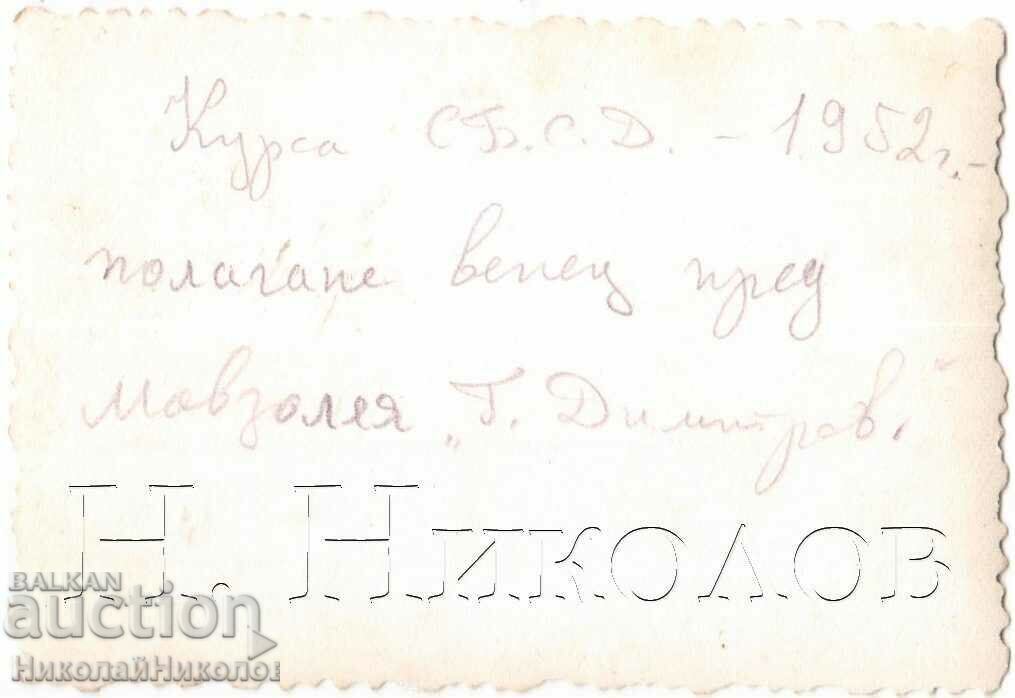 Курса С.Б.С.Д. - 1952г.-
полагане венец пред
Мавзолея „Г. Димитров."
Н. Николов
BALKAN
auction
НиколайНиколов